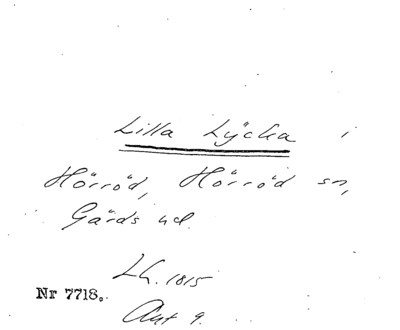 Lilla Lÿcka i
Hörröd, Hörröd sn,
Gärds hd.
Lh. 1815
Nr 7718.
Akt 9.